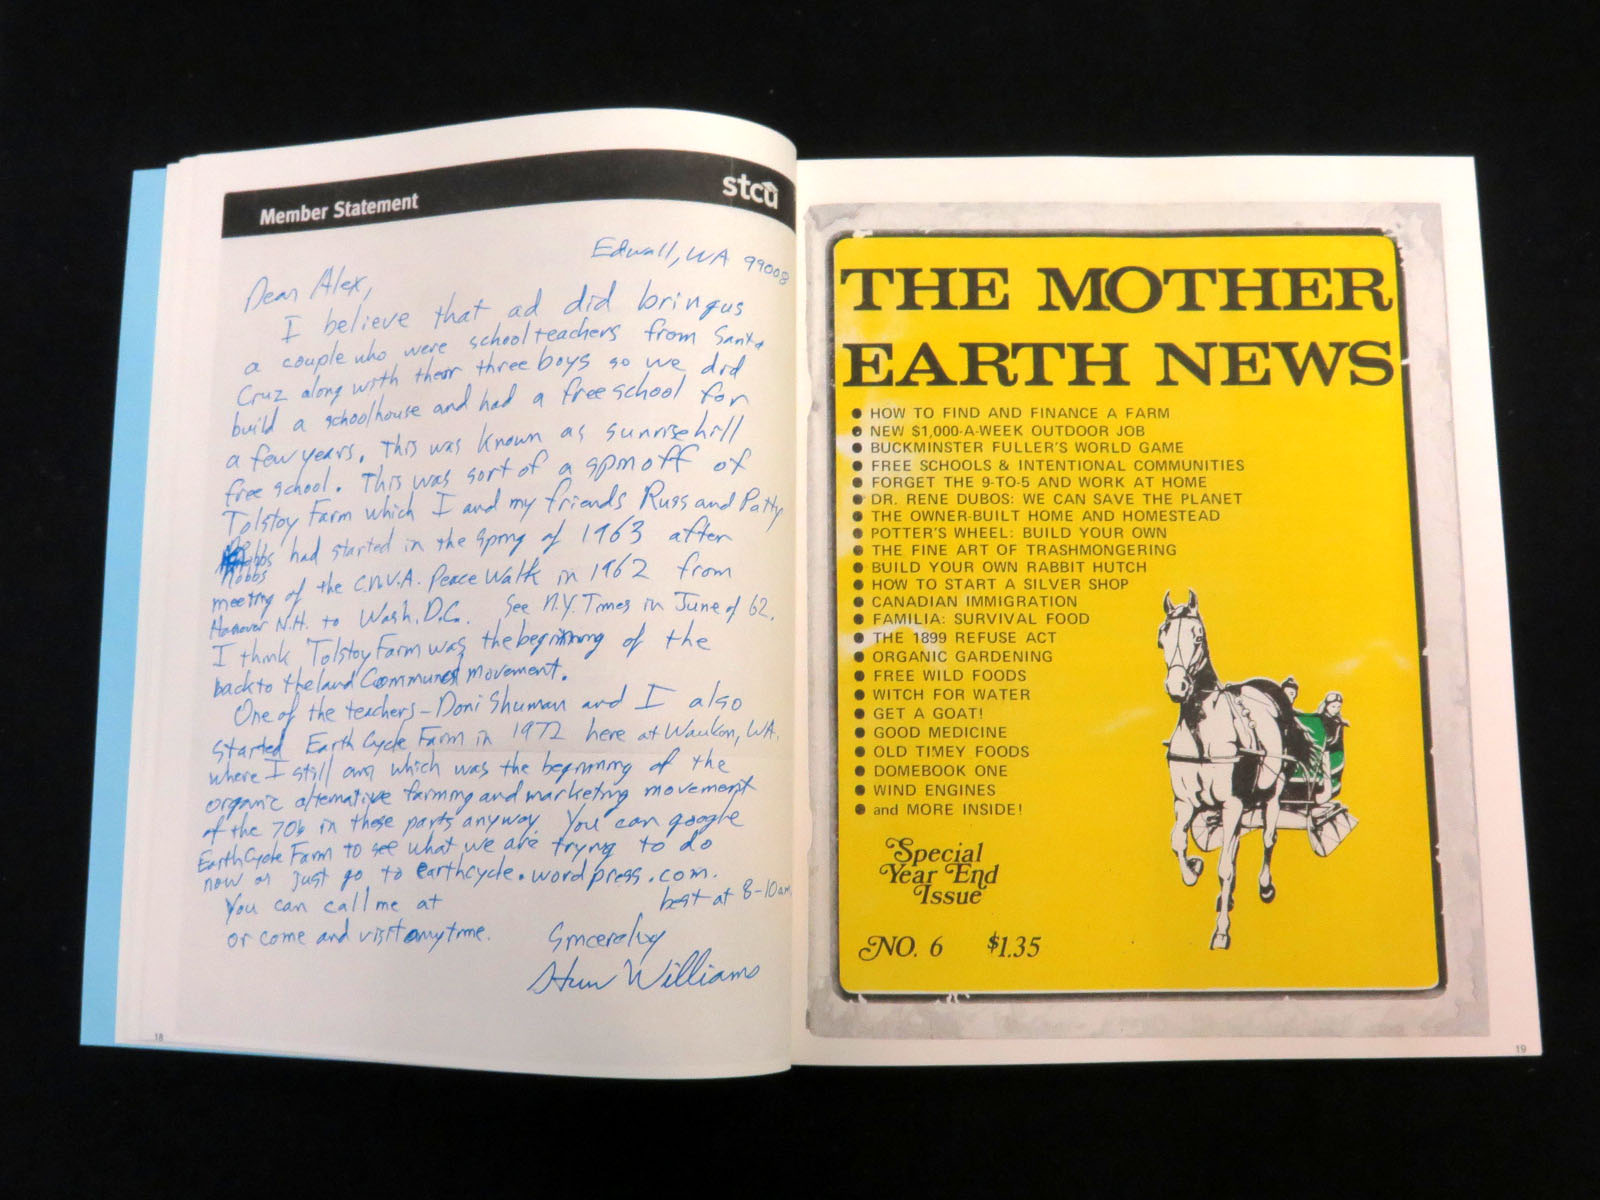 Member Statement
stcu
Edwall, WA 99008
Dear Alex,
I believe that ad did bring us
a couple who were schoolteachers from Santa
Cruz along with their three boys so we did
build a schoolhouse and had a free school for
a few years. This was known as sunrise hill
free school. This was sort of a spin off of
Tolstoy Farm which I and my friends Russ and Patty
Nobbs had started in the spring of 1963 after
meeting of the C.N.V.A. Peace Walk in 1962 from
Hanover N.H. to Wash. D.C. See N.Y. Times in June of 62.
I think Tolstoy Farm was the beginning of the
back to the land movement.
One of the teachers - Doni Shuman and I also
started Earth Cycle Farm in 1972 here at Waukon, WA.
where I still am which was the beginning of the
organic alternative farming and marketing movement
of the 70s in these parts anyway. You can google
EarthCycle Farm to see what we are trying to do
now or just go to earthcycle.wordpress.com.
You can call me at best at 8-10am
or come and visit anytime.
Sincerely
Williams
18
THE MOTHER
EARTH NEWS
● HOW TO FIND AND FINANCE A FARM
● NEW $1,000-A-WEEK OUTDOOR JOB
● BUCKMINSTER FULLER'S WORLD GAME
● FREE SCHOOLS & INTENTIONAL COMMUNITIES
● FORGET THE 9-TO-5 AND WORK AT HOME
● DR. RENE DUBOS: WE CAN SAVE THE PLANET
● THE OWNER-BUILT HOME AND HOMESTEAD
● POTTER'S WHEEL: BUILD YOUR OWN
● THE FINE ART OF TRASHMONGERING
● BUILD YOUR OWN RABBIT HUTCH
● HOW TO START A SILVER SHOP
● CANADIAN IMMIGRATION
● FAMILIA: SURVIVAL FOOD
● THE 1899 REFUSE ACT
● ORGANIC GARDENING
● FREE WILD FOODS
● WITCH FOR WATER
● GET A GOAT!
● GOOD MEDICINE
● OLD TIMEY FOODS
● DOMEBOOK ONE
● WIND ENGINES
● and MORE INSIDE!
Special
Year End
Issue
NO. 6 $1.35
19